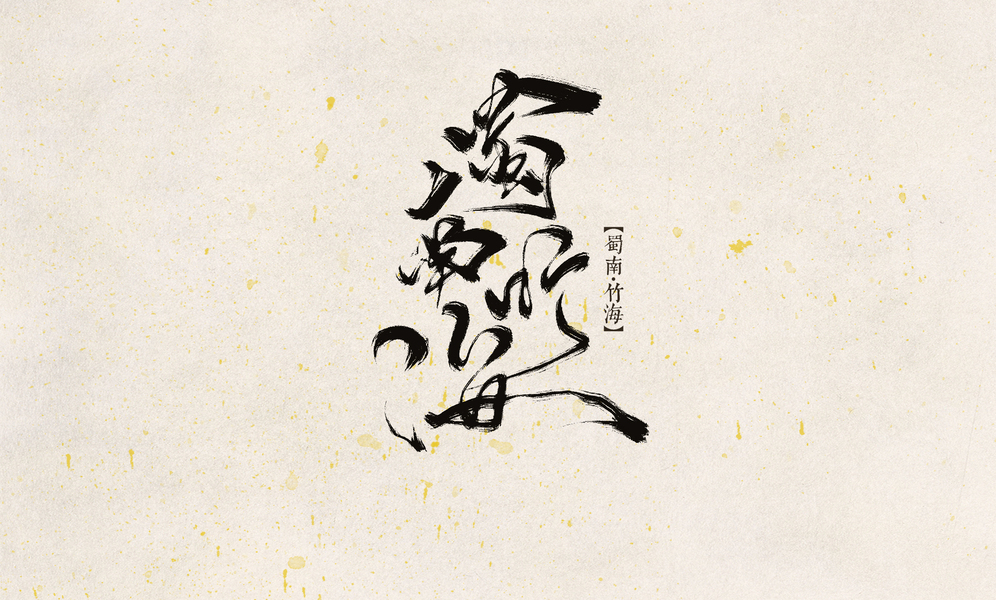 蜀南竹海
【蜀南·竹海】